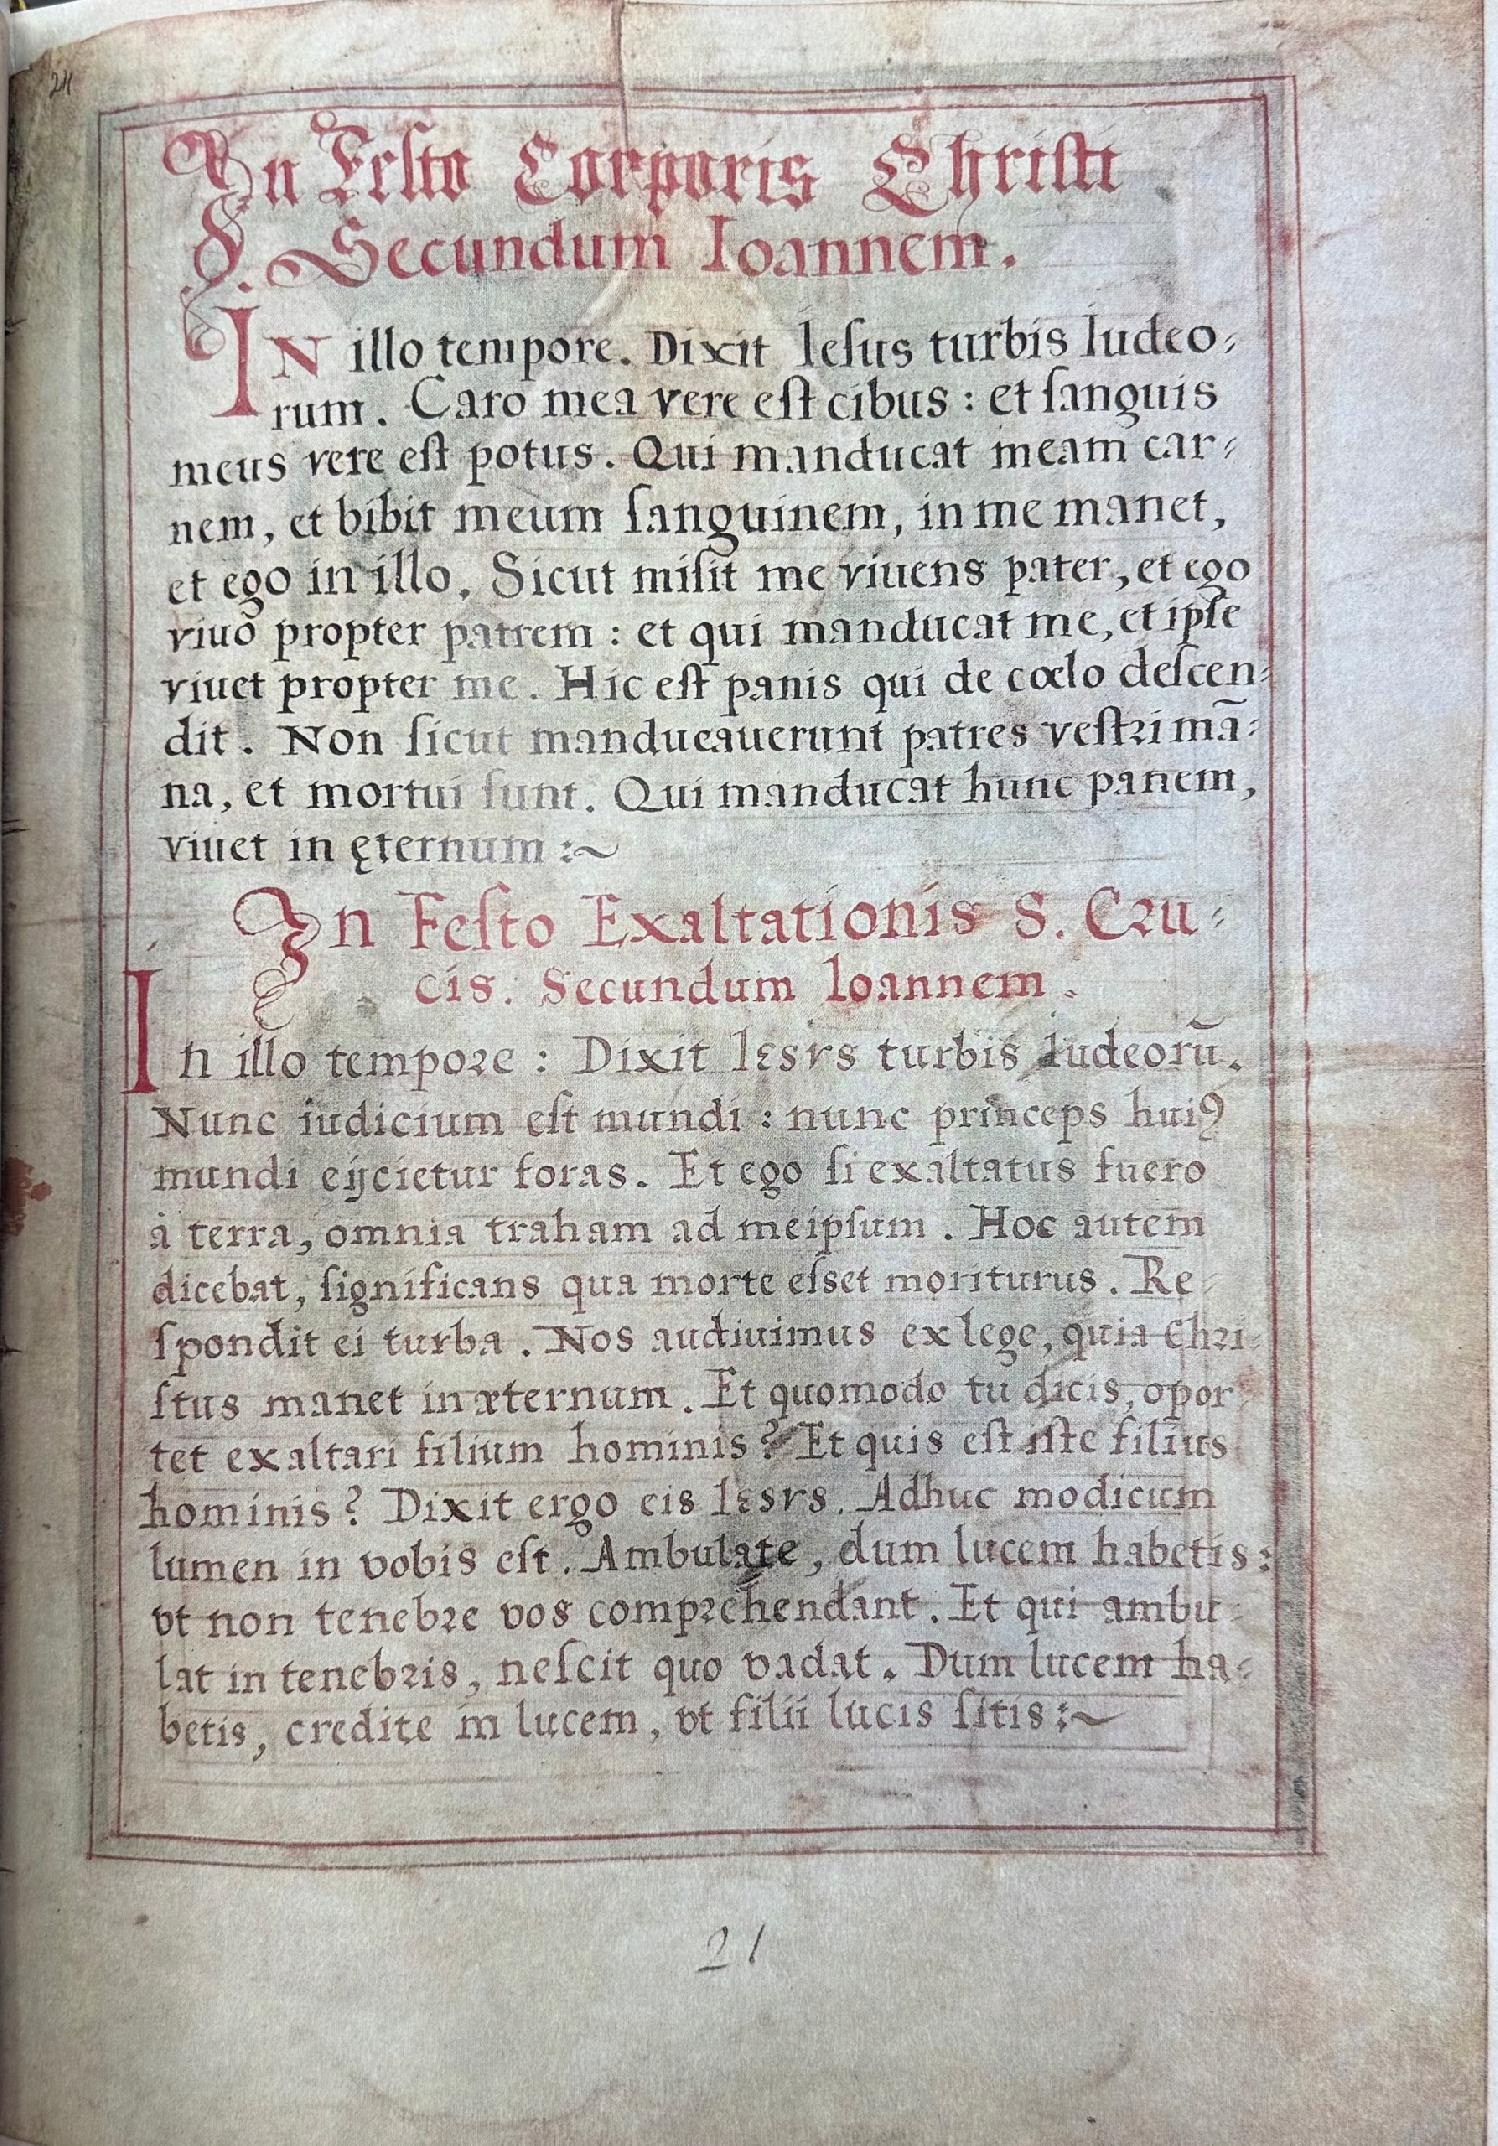 24
In Feſto Corporis Chriſti
Secundum Ioannem.
IN illo tempore. Dixit Ieſus turbis Iudeo⸗
rum. Caro mea vere eſt cibus : et ſanguis
meus vere eſt potus. Qui manducat meam car⸗
nem, et bibit meum ſanguinem, in me manet,
et ego in illo. Sicut miſit me viuens pater, et ego
viuo propter patrem : et qui manducat me, et ipſe
viuet propter me. Hic eſt panis qui de cœlo deſcen⸗
dit. Non ſicut manducauerunt patres veſtri mā⸗
na, et mortui ſunt. Qui manducat hunc panem,
viuet in ęternum :~
In Feſto Exaltationis S. Cru⸗
cis. Secundum Ioannem.
In illo tempore : Dixit Iesvs turbis Iudeorū.
Nunc iudicium eſt mundi : nunc princeps huiꝰ
mundi eijcietur foras. Et ego ſi exaltatus fuero
à terra, omnia traham ad meipſum. Hoc autem
dicebat, ſignificans qua morte eſset moriturus. Re⸗
ſpondit ei turba. Nos audiuimus ex lege, quia Chri⸗
ſtus manet in æternum. Et quomodo tu dicis, opor⸗
tet exaltari filium hominis? Et quis eſt iſte filius
hominis? Dixit ergo eis Iesvs. Adhuc modicum
lumen in vobis eſt. Ambulate, dum lucem habetis :
vt non tenebre vos comprehendant. Et qui ambu⸗
lat in tenebris, neſcit quo vadat. Dum lucem ha⸗
betis, credite in lucem, vt filii lucis ſitis :~
21